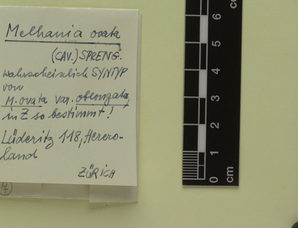 Melhania ovata
(CAV.) SPRENG.
wahrscheinlich SYNTYP
von
M. ovata var. oblongata,
in Z so bestimmt!
Lüderitz 118, Herero-
land
ZÜRICH
0
1
2
3
4
5
6
cm